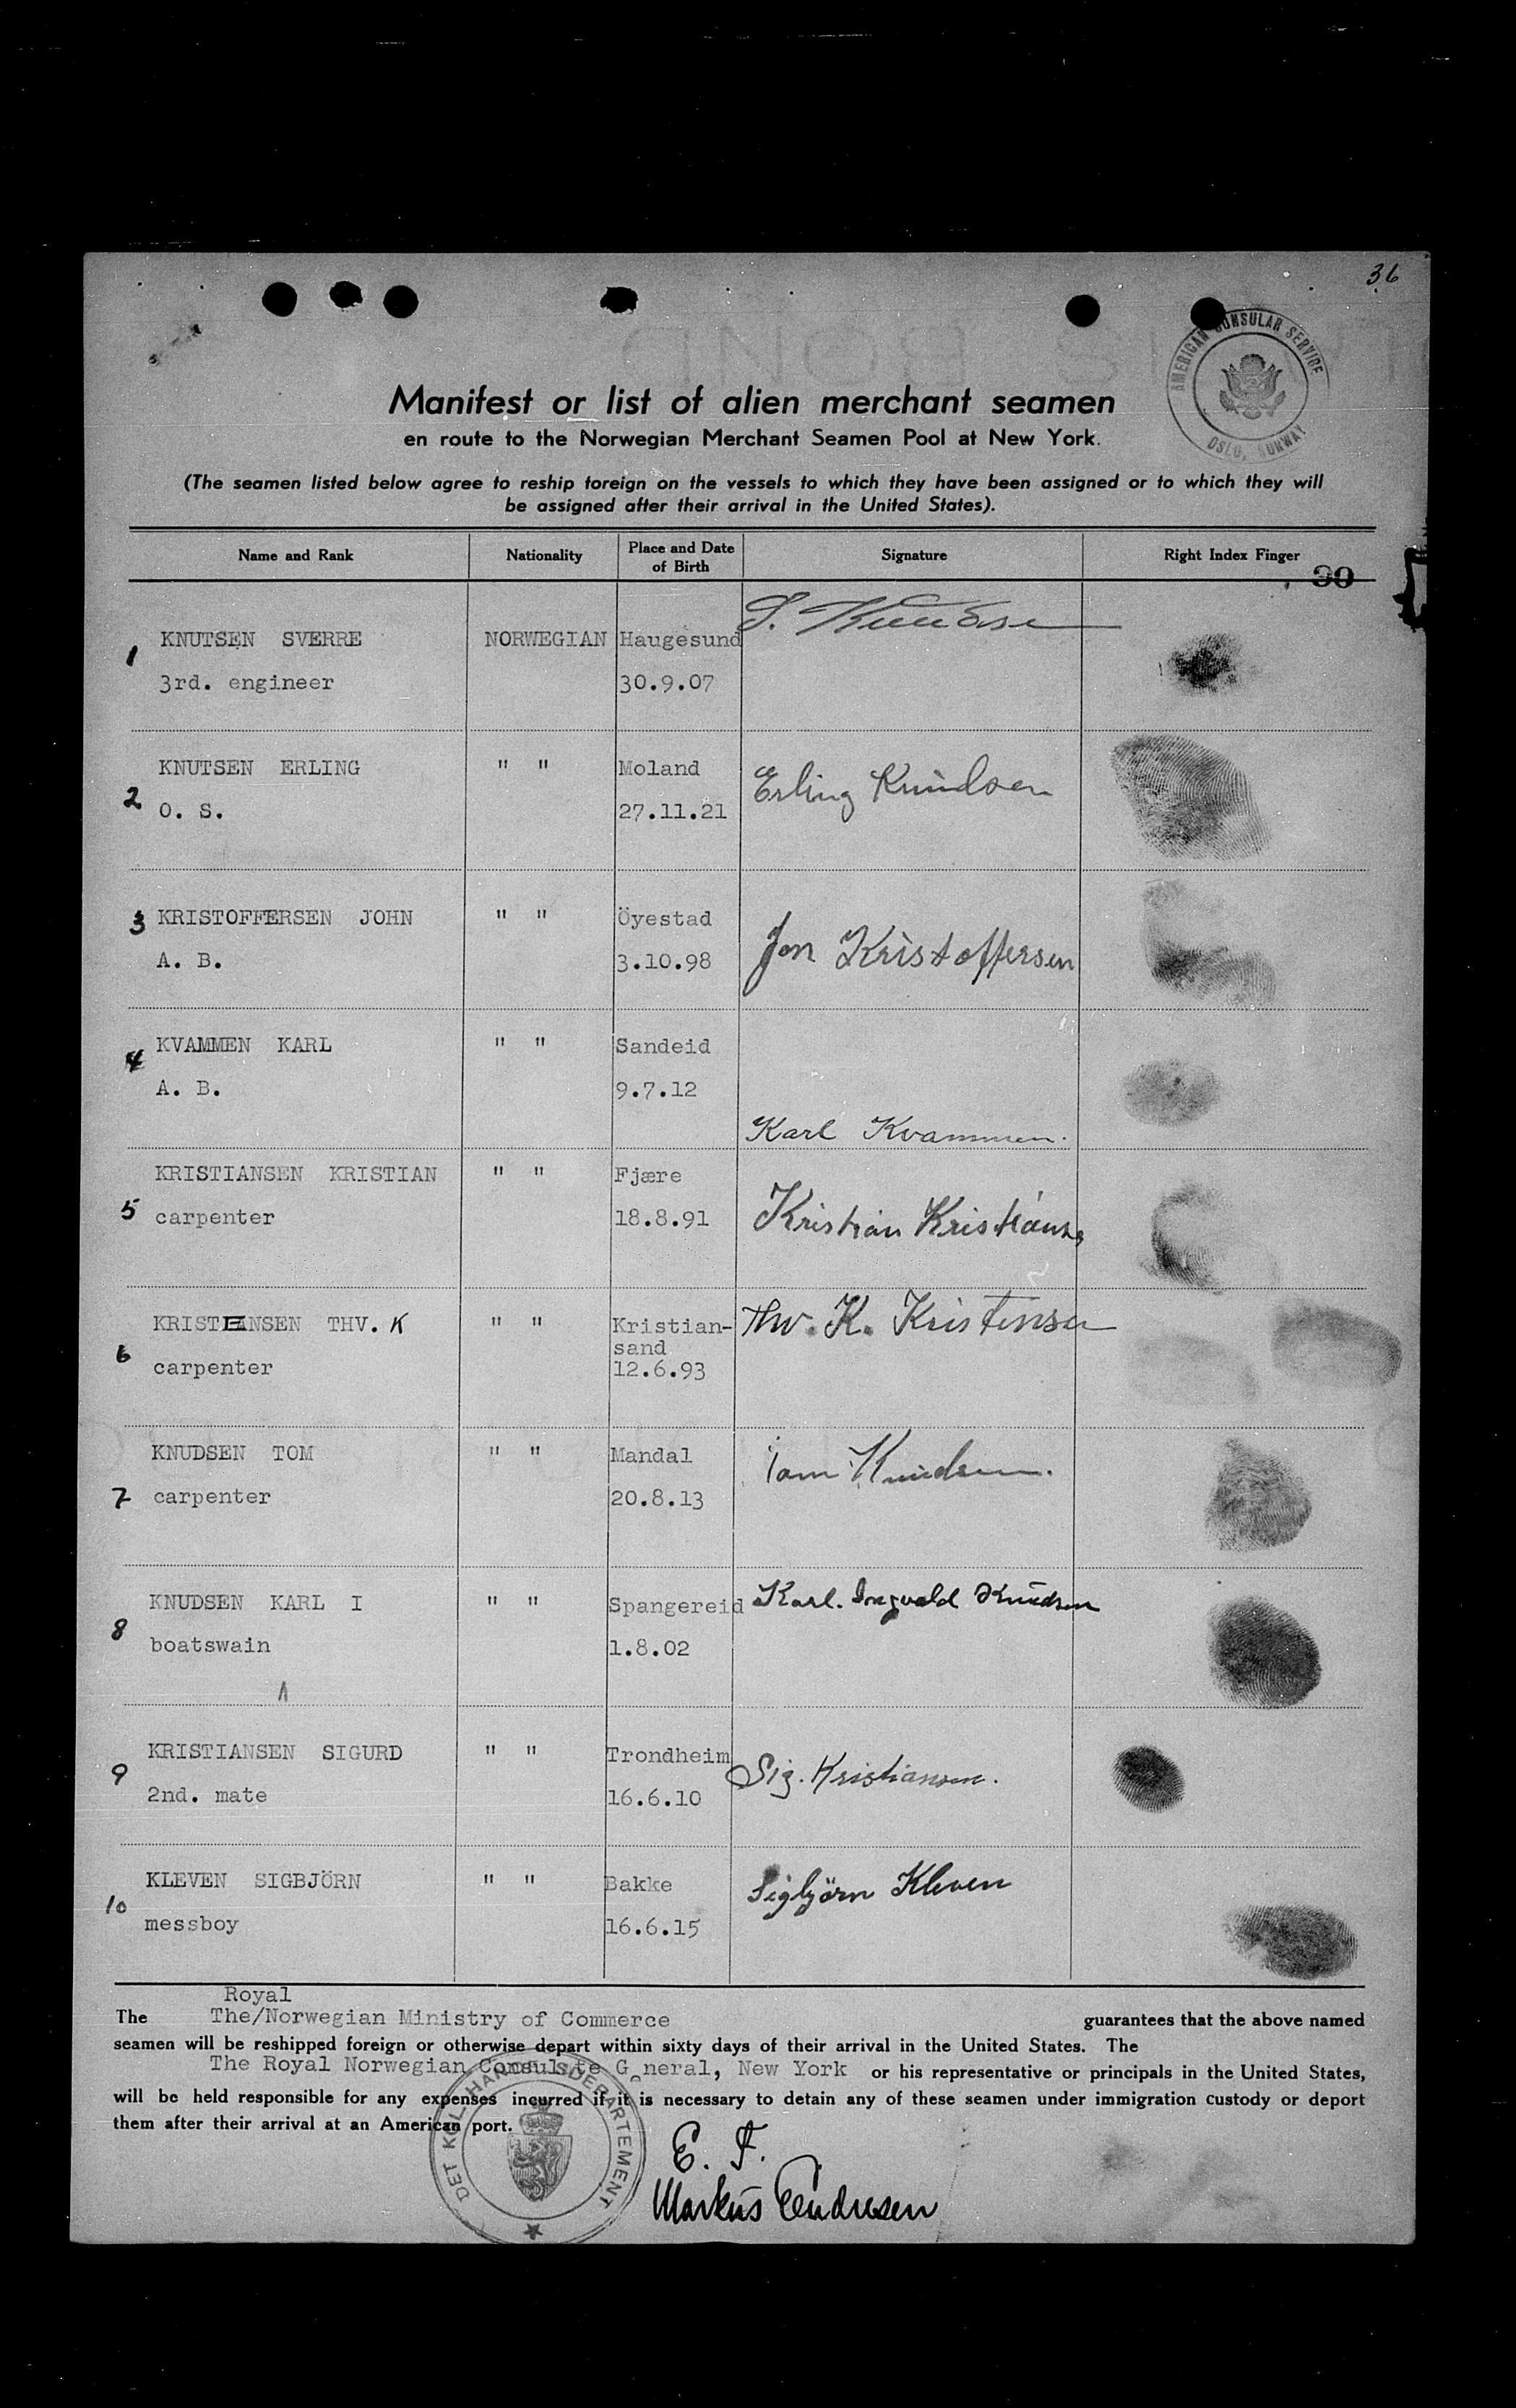 36
AMERICAN CONSULAR SERVICE
OSLO, NORWAY
Manifest or list of alien merchant seamen
en route to the Norwegian Merchant Seamen Pool at New York.
(The seamen listed below agree to reship foreign on the vessels to which they have been assigned or to which they will
be assigned after their arrival in the United States).
Name and Rank Nationality Place and Date of Birth Signature Right Index Finger
30
1 KNUTSEN SVERRE NORWEGIAN Haugesund S. Knudsen
3rd. engineer 30.9.07
KNUTSEN ERLING " " Moland
2 O. S. 27.11.21 Erling Knudsen
3 KRISTOFFERSEN JOHN " " Öyestad
A. B. 3.10.98 Jon Kristoffersen
4 KVAMMEN KARL " " Sandeid
A. B. 9.7.12
Karl Kvammen.
KRISTIANSEN KRISTIAN " " Fjære
5 carpenter 18.8.91 Kristian Kristians
KRISTENSEN THV. K " " Kristian- Thv. K. Kristensen
sand
6 carpenter 12.6.93
KNUDSEN TOM " " Mandal Tom Knudsen.
7 carpenter 20.8.13
KNUDSEN KARL I " " Spangereid Karl. Ingvald Knudsen
8 boatswain 1.8.02
KRISTIANSEN SIGURD " " Trondheim Sig. Kristiansen.
9 2nd. mate 16.6.10
KLEVEN SIGBJÖRN " " Bakke Sigbjörn Kleven
10 messboy 16.6.15
Royal
The The/Norwegian Ministry of Commerce guarantees that the above named
seamen will be reshipped foreign or otherwise depart within sixty days of their arrival in the United States. The
The Royal Norwegian Consulate G neral, New York or his representative or principals in the United States,
will be held responsible for any expenses incurred if it is necessary to detain any of these seamen under immigration custody or deport
them after their arrival at an American port.
DET KGL. HANDELSDEPARTEMENT
E. F.
Markus Endresen